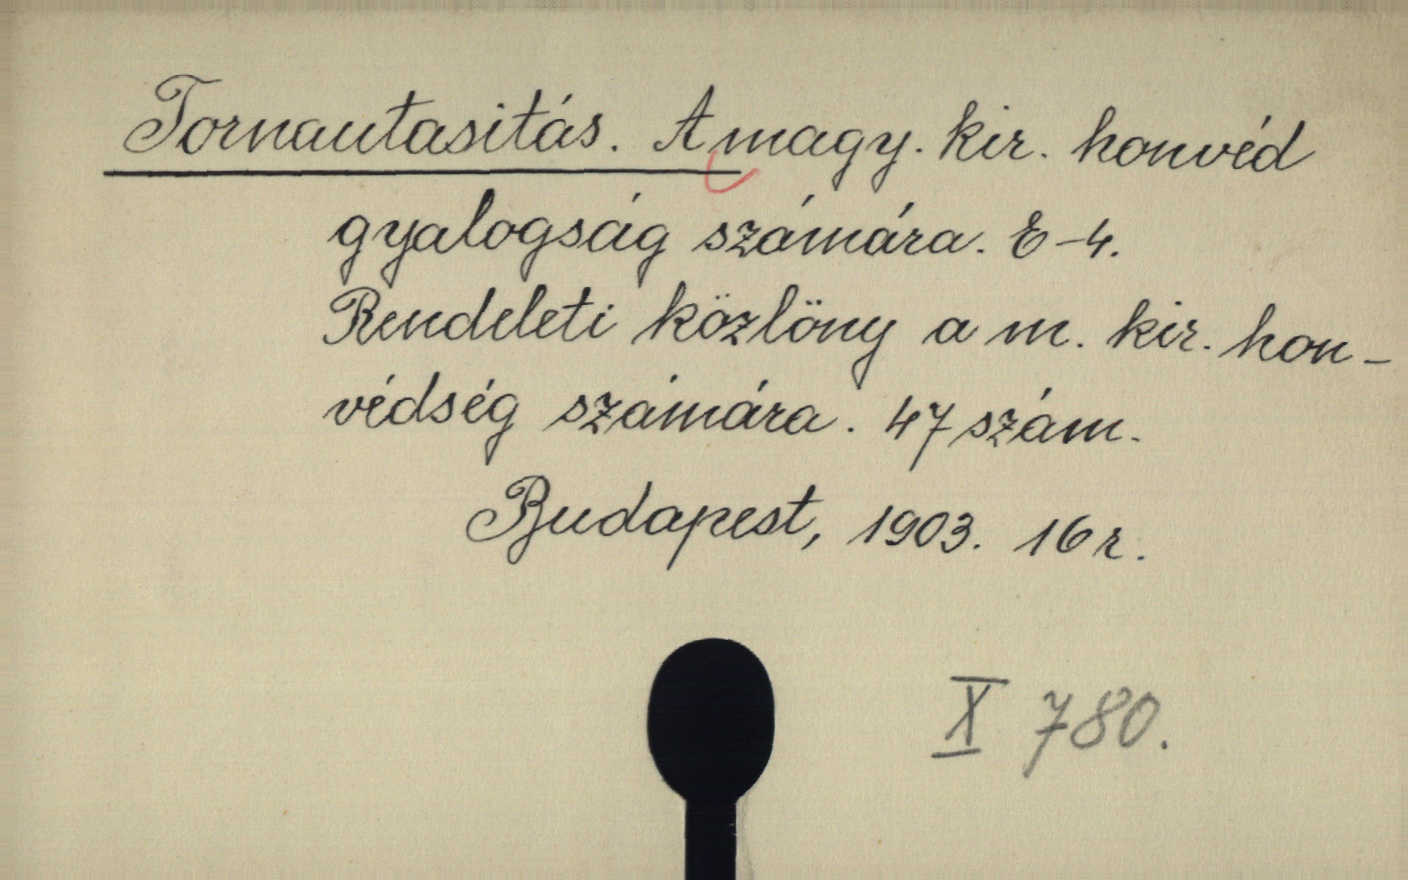 Tornautasitás. A magy. kir. honvéd
gyalogság számára. E-4.
Rendeleti közlöny a m. kir. hon-
védség számára. 47 szám.
Budapest, 1903. 16 r.
X 780.